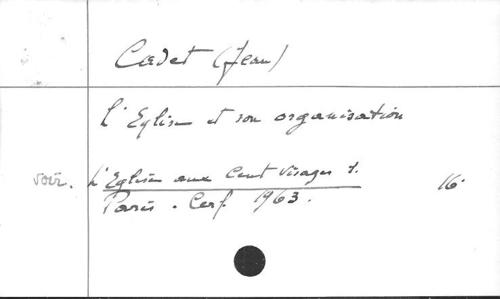 Cadet (Jean)
L'Eglise et son organisation
voir. L'Eglise aux Cent Visages 1. 16.
Paris. Cerf. 1963.